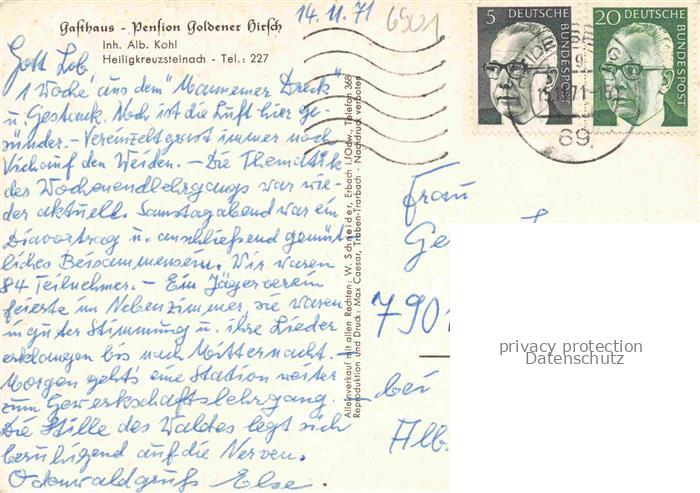 14.11.71
6901
Gasthaus - Pension Goldener Hirsch
Inh. Alb. Kohl
Heiligkreuzsteinach - Tel.: 227
Gott Lob
1 Woche aus dem "Mannemer Dreck"
u. Gestank. Noch ist die Luft hier ge-
sünder. - Vereinzelt grast immer noch
Vieh auf den Weiden. - Die Thematik
des Wochenendlehrgangs war wie-
der aktuell. Samstagabend war ein
Diavortrag u. anschließend gemüt-
liches Beisammensein. Wir waren
84 Teilnehmer. - Ein Jägerverein
feierte im Nebenzimmer, sie waren
in guter Stimmung u. ihre Lieder
erklangen bis nach Mitternacht. -
Morgen geht's eine Station weiter
zum Gewerkschaftslehrgang. -
Die Stille des Waldes legt sich
beruhigend auf die Nerven.
Odenwaldgruß Else.
Alleinverkauf mit allen Rechten: W. Schneider, Erbach i./Odw., Telefon 368
Reproduktion und Druck: Max Caesar, Traben-Trarbach - Nachdruck verboten
5 DEUTSCHE BUNDESPOST
20 DEUTSCHE BUNDESPOST
69
Frau
Ge
790
bei
Alb.
privacy protection
Datenschutz